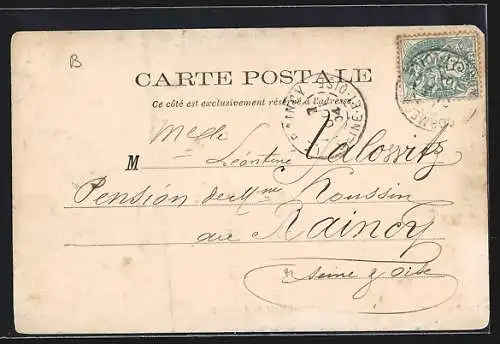 B
CARTE POSTALE
Ce côté est exclusivement réservé à l'adresse
Melle
M Léontine Yalowitz
Pension de Mme Houssin
au Raincy
Seine & Oise